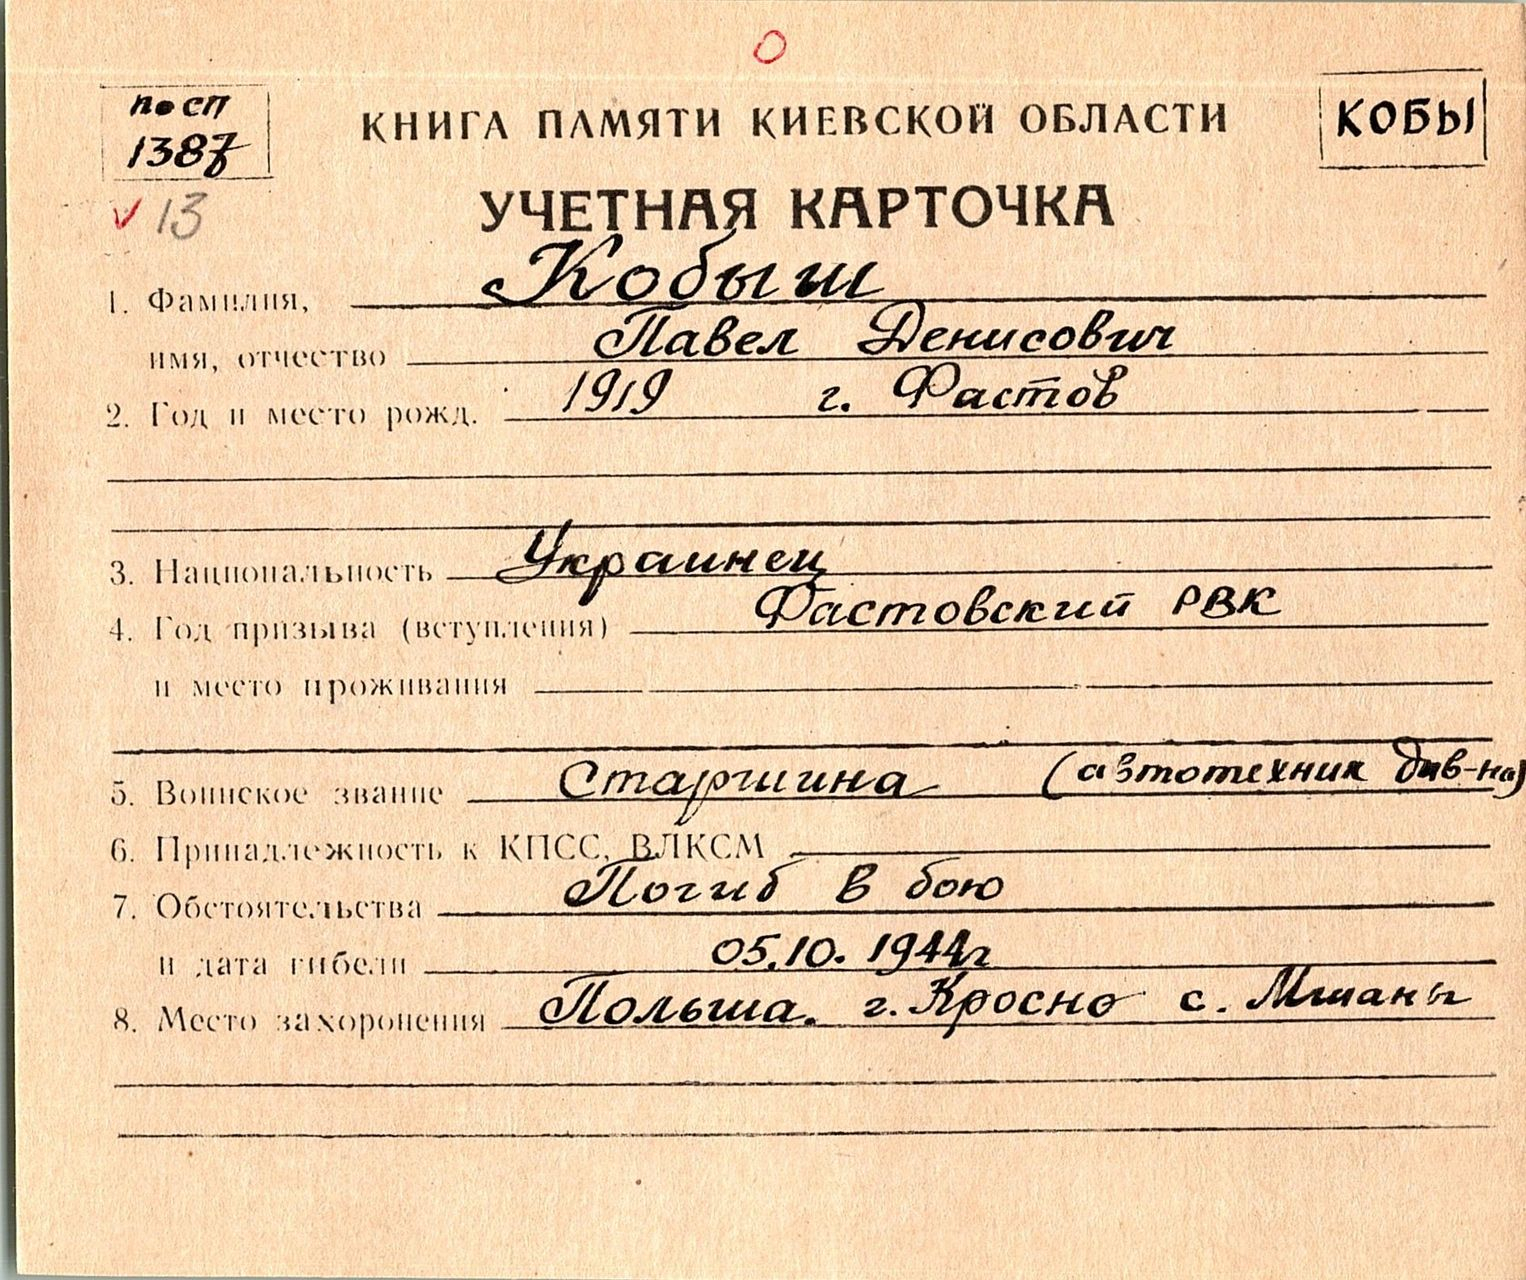 по сп
1387
КНИГА ПАМЯТИ КИЕВСКОЙ ОБЛАСТИ
КОБЫ
13
УЧЕТНАЯ КАРТОЧКА
1. Фамилия, Кобыш
имя, отчество Павел Денисович
2. Год и место рожд. 1919 г. Фастов
3. Национальность Украинец
4. Год призыва (вступления) Фастовский РВК
и место проживания
5. Воинское звание Старшина (автотехник див-на)
6. Принадлежность к КПСС, ВЛКСМ
7. Обстоятельства Погиб в бою
и дата гибели 05.10.1944г
8. Место захоронения Польша. г. Кросно с. Мшаны